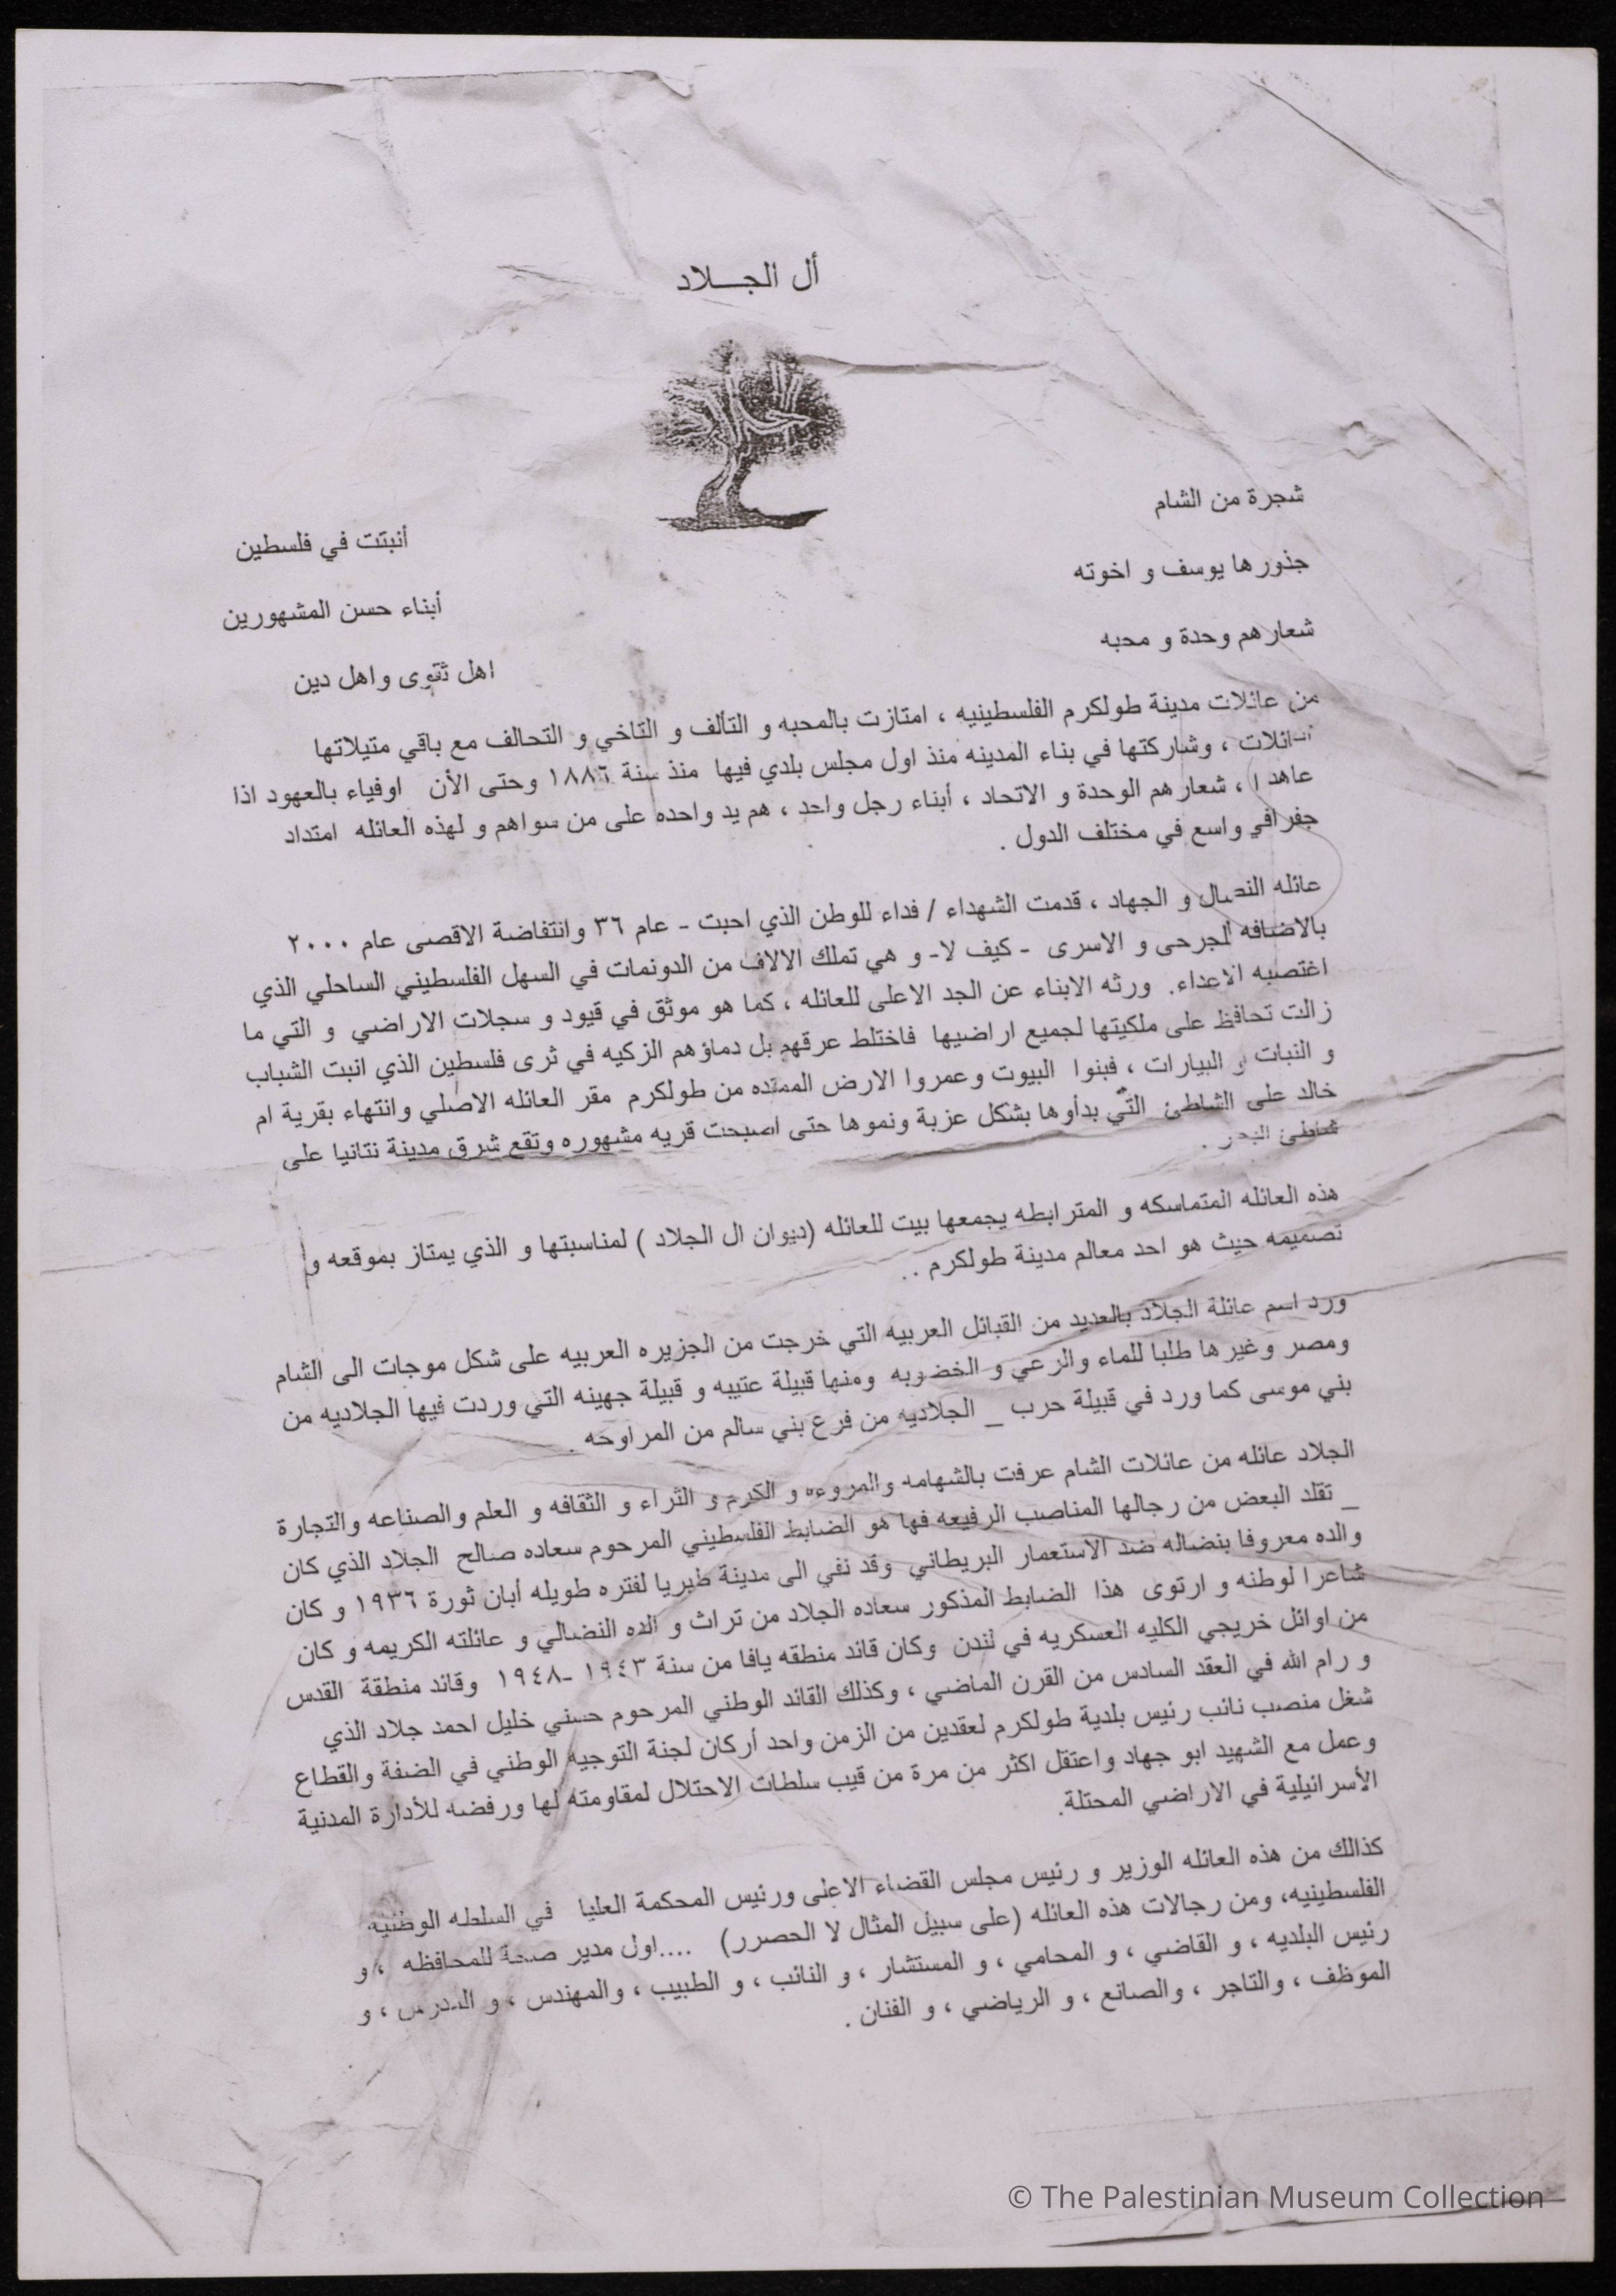 أل الجـــلاد
شجرة من الشام
أنبتت في فلسطين
جذورها يوسف و اخوته
أبناء حسن المشهورين
شعارهم وحدة و محبه
اهل تقوى واهل دين
من عائلات مدينة طولكرم الفلسطينيه ، امتازت بالمحبه و التألف و التاخي و التحالف مع باقي متيلاتها
، وشاركتها في بناء المدينه منذ اول مجلس بلدي فيها منذ سنة ١٨٨٦ وحتى الأن اوفياء بالعهود اذا
عاهدا ، شعارهم الوحدة و الاتحاد ، أبناء رجل واحد ، هم يد واحده على من سواهم و لهذه العائله امتداد
جغرافي واسع في مختلف الدول .
عائله النضال و الجهاد ، قدمت الشهداء / فداء للوطن الذي احبت - عام ٣٦ وانتفاضة الاقصى عام ٢٠٠٠
بالاضافه لجرحى و الاسرى - كيف لا- و هي تملك الالاف من الدونمات في السهل الفلسطيني الساحلي الذي
اغتصبه الاعداء. ورثه الابناء عن الجد الاعلى للعائله ، كما هو موثق في قيود و سجلات الاراضي و التي ما
زالت تحافظ على ملكيتها لجميع اراضيها فاختلط عرقهم بل دماؤهم الزكيه في ثرى فلسطين الذي انبت الشباب
و النبات و البيارات ، فبنوا البيوت وعمروا الارض الممتده من طولكرم مقر العائله الاصلي وانتهاء بقرية ام
خالد على الشاطئ التي بدأوها بشكل عزبة ونموها حتى اصبحت قريه مشهوره وتقع شرق مدينة نتانيا على
شاطئ البحر .
هذه العائله المتماسكه و المترابطه يجمعها بيت للعائله (ديوان ال الجلاد ) لمناسبتها و الذي يمتاز بموقعه و
تصميمه حيث هو احد معالم مدينة طولكرم . .
ورد اسم عائلة الجلاد بالعديد من القبائل العربيه التي خرجت من الجزيره العربيه على شكل موجات الى الشام
ومصر وغيرها طلبا للماء والرعي و الخضوبه ومنها قبيلة عتيبه و قبيلة جهينه التي وردت فيها الجلاديه من
بني موسى كما ورد في قبيلة حرب _ الجلاديه من فرع بني سالم من المراوحه .
الجلاد عائله من عائلات الشام عرفت بالشهامه والمروءه و الكرم و الثراء و الثقافه و العلم والصناعه والتجارة
_ تقلد البعض من رجالها المناصب الرفيعه فها هو الضابط الفلسطيني المرحوم سعاده صالح الجلاد الذي كان
والده معروفا بنضاله ضد الاستعمار البريطاني وقد نفي الى مدينة طبريا لفتره طويله أبان ثورة ١٩٣٦ و كان
شاعرا لوطنه و ارتوى هذا الضابط المذكور سعاده الجلاد من تراث و الده النضالي و عائلته الكريمه و كان
من اوائل خريجي الكليه العسكريه في لندن وكان قائد منطقه يافا من سنة ١٩٤٣ -١٩٤٨ وقائد منطقة القدس
و رام الله في العقد السادس من القرن الماضي ، وكذلك القائد الوطني المرحوم حسني خليل احمد جلاد الذي
شغل منصب نائب رئيس بلدية طولكرم لعقدين من الزمن واحد أركان لجنة التوجيه الوطني في الضفة والقطاع
وعمل مع الشهيد ابو جهاد واعتقل اكثر من مرة من قيب سلطات الاحتلال لمقاومته لها ورفضه للأدارة المدنية
الأسرائيلية في الاراضي المحتلة.
كذالك من هذه العائله الوزير و رئيس مجلس القضاء الاعلى ورئيس المحكمة العليا في السلطه الوطنيه
الفلسطينيه، ومن رجالات هذه العائله (على سبيل المثال لا الحصرر) ....اول مدير صحة للمحافظه ، و
رئيس البلديه ، و القاضي ، و المحامي ، و المستشار ، و النائب ، و الطبيب ، والمهندس ، و المدرس ، و
الموظف ، والتاجر ، والصانع ، و الرياضي ، و الفنان .
© The Palestinian Museum Collection